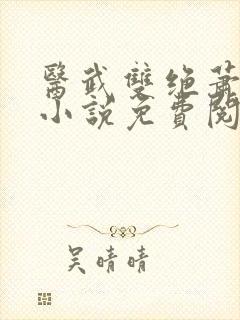 醫武雙绝蕭
小說免費閱
吴晴晴